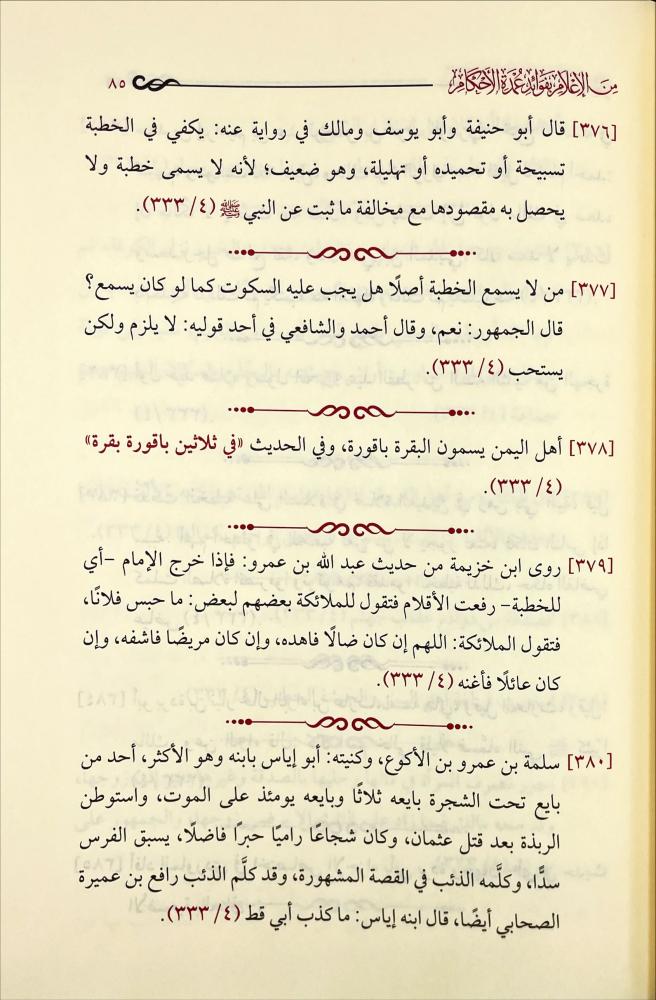 من الإعلام بفوائد عمدة الأحكام ٨٥
[٣٧٦] قال أبو حنيفة وأبو يوسف ومالك في رواية عنه: يكفي في الخطبة
تسبيحة أو تحميده أو تهليلة، وهو ضعيف؛ لأنه لا يسمى خطبة ولا
يحصل به مقصودها مع مخالفة ما ثبت عن النبي ﷺ (٤/ ٣٣٣).
[٣٧٧] من لا يسمع الخطبة أصلًا هل يجب عليه السكوت كما لو كان يسمع؟
قال الجمهور: نعم، وقال أحمد والشافعي في أحد قوليه: لا يلزم ولكن
يستحب (٤/ ٣٣٣).
[٣٧٨] أهل اليمن يسمون البقرة باقورة، وفي الحديث «في ثلاثين باقورة بقرة»
(٤/ ٣٣٣).
[٣٧٩] روى ابن خزيمة من حديث عبد الله بن عمرو: فإذا خرج الإمام –أي
للخطبة– رفعت الأقلام فتقول للملائكة بعضهم لبعض: ما حبس فلانًا،
فتقول الملائكة: اللهم إن كان ضالًا فاهده، وإن كان مريضًا فاشفه، وإن
كان عائلًا فأغنه (٤/ ٣٣٣).
[٣٨٠] سلمة بن عمرو بن الأكوع، وكنيته: أبو إياس بابنه وهو الأكثر، أحد من
بايع تحت الشجرة بايعه ثلاثًا وبايعه يومئذ على الموت، واستوطن
الربذة بعد قتل عثمان، وكان شجاعًا راميًا حبرًا فاضلًا، يسبق الفرس
سدًّا، وكلَّمه الذئب في القصة المشهورة، وقد كلَّم الذئب رافع بن عميرة
الصحابي أيضًا، قال ابنه إياس: ما كذب أبي قط (٤/ ٣٣٣).